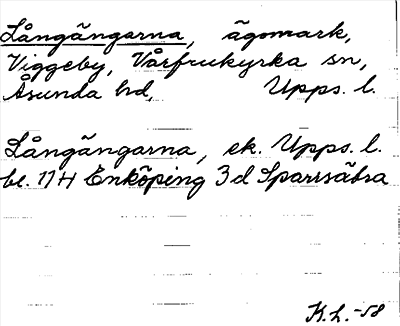 Långängarna, ägomark,
Viggeby, Vårfrukyrka sn,
Åsunda hd, Upps. l.
Långängarna, ek. Upps. l.
bl. 11H Enköping 3d Sparrsätra
K.L. -58